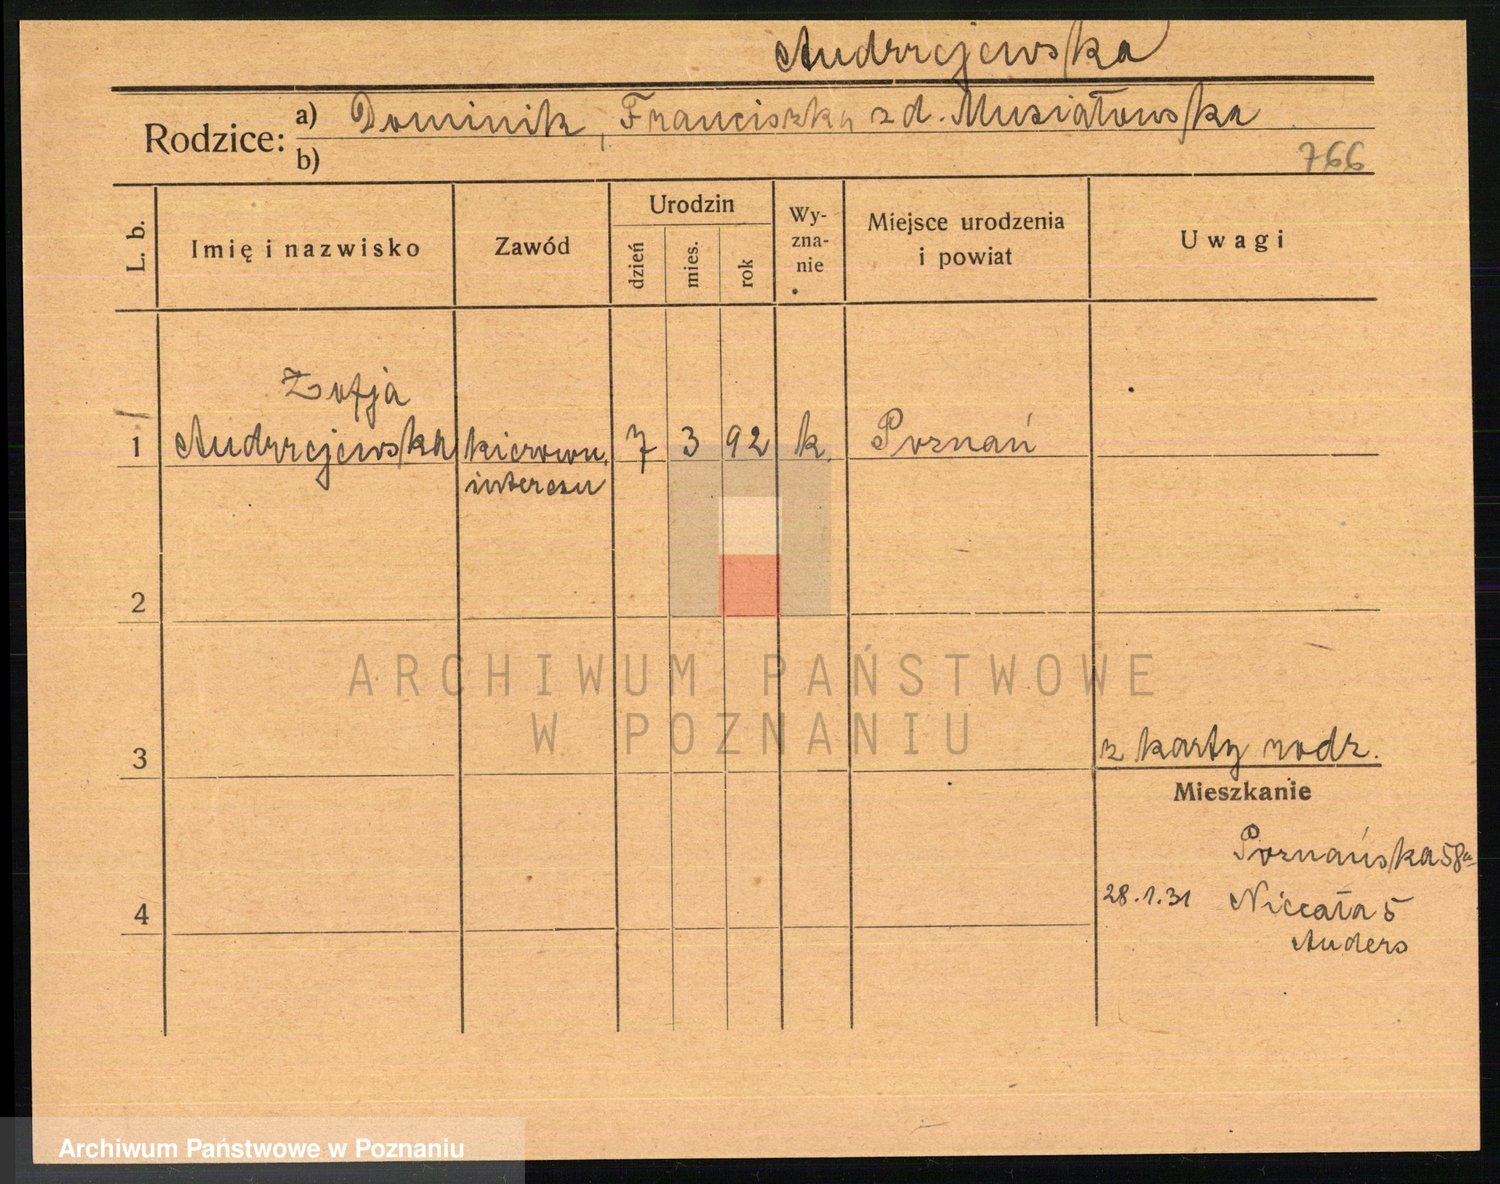 Andrzejewska
Rodzice: a) Dominik, Franciszka z d. Musiałowska
b)
766
L. b.
Imię i nazwisko
Zawód
Urodzin
dzień
mies.
rok
Wy-
zna-
nie
Miejsce urodzenia
i powiat
Uwagi
Zofja
1 Andrzejewska kierown. 7 3 92 k. Poznań
interesu
2
3
z karty rodz.
Mieszkanie
Poznańska 58a
28.1.31 Niecała 5
4
Anders
ARCHIWUM PAŃSTWOWE
W POZNANIU
Archiwum Państwowe w Poznaniu